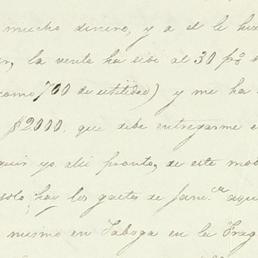 mucho dinero, y a el le hi
la venta ha sido al 30 p%
como 700 de utilidad) y me ha
$2000, que debe entregarme e
yo alli pronto, de este mo
solo, hay los gastos de Jane.ca aqu
mismo en Taboga en la Frag